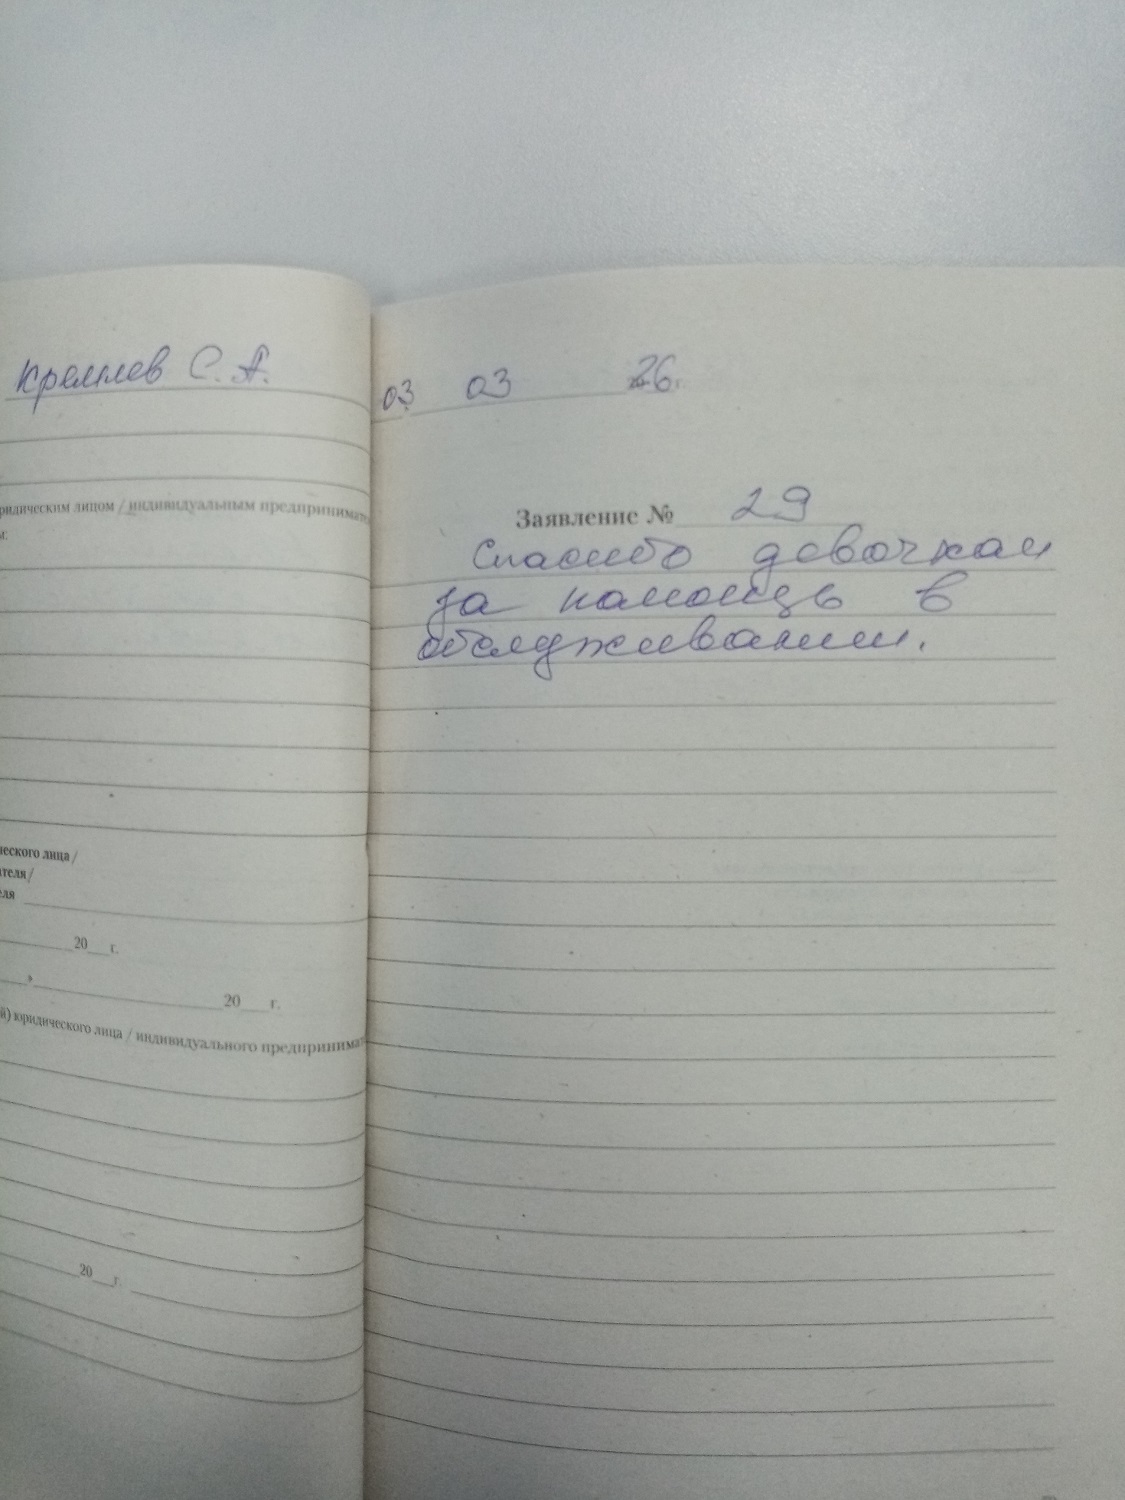 Кремлев С. А.
ридическим лицом / индивидуальным предпринимат
м:
ческого лица /
ателя /
еля
20 г.
, 20 г.
й) юридического лица / индивидуального предпринимат
20 г.
03 03 26.
Заявление № 29
Спасибо девочкам
за помощь в
обслуживании.